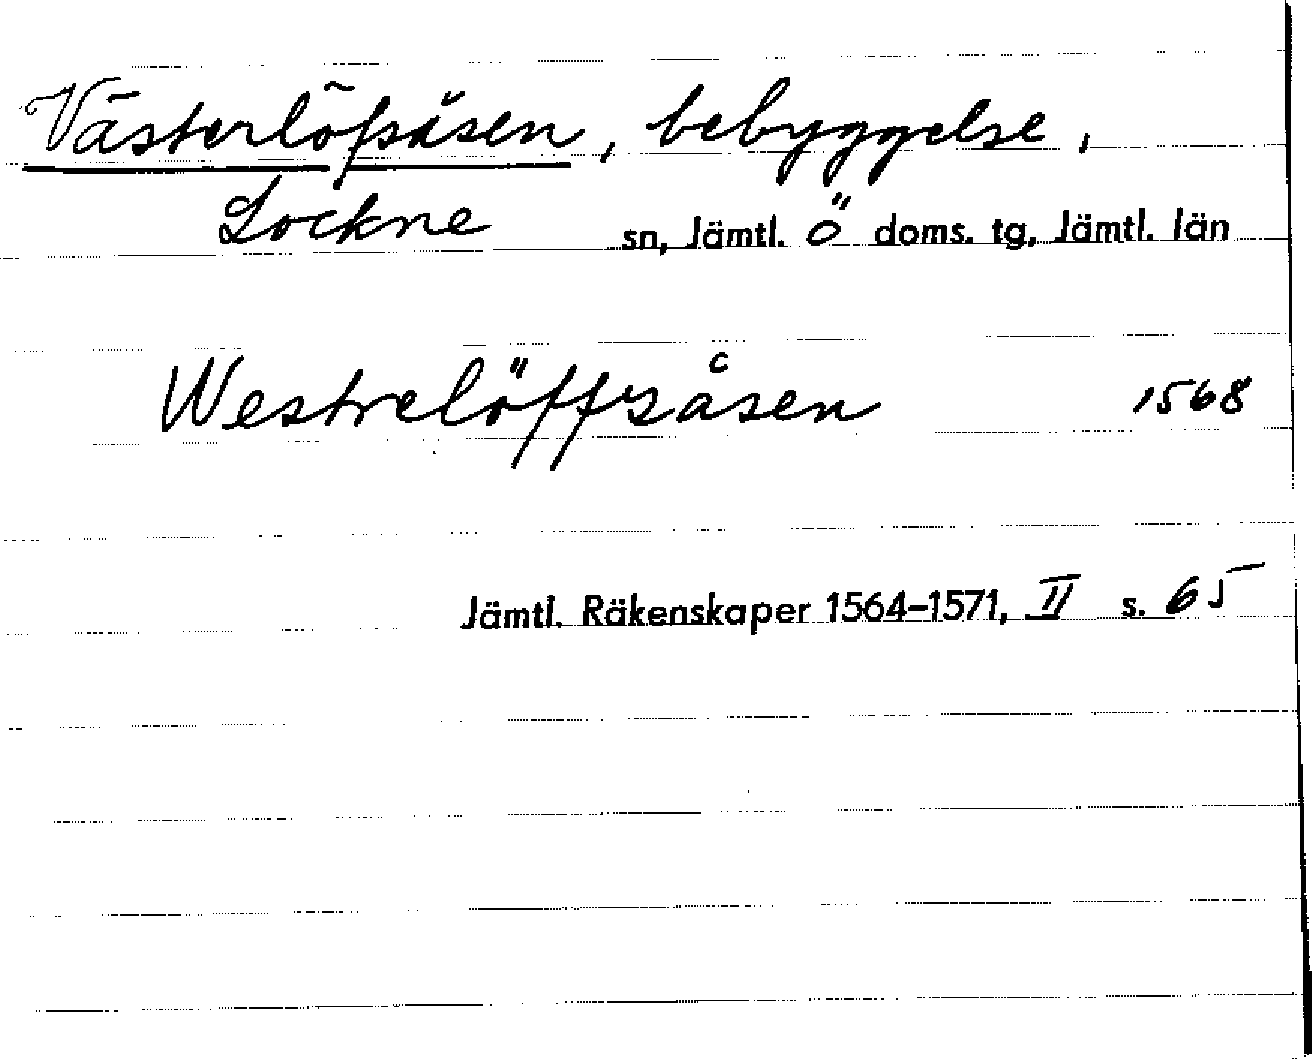 Västerlöfsåsen, bebyggelse,
Lockne sn, Jämtl. Ö doms. tg, Jämtl. län
Westrelöffzåsen 1568
Jämtl. Räkenskaper 1564-1571, II s. 65